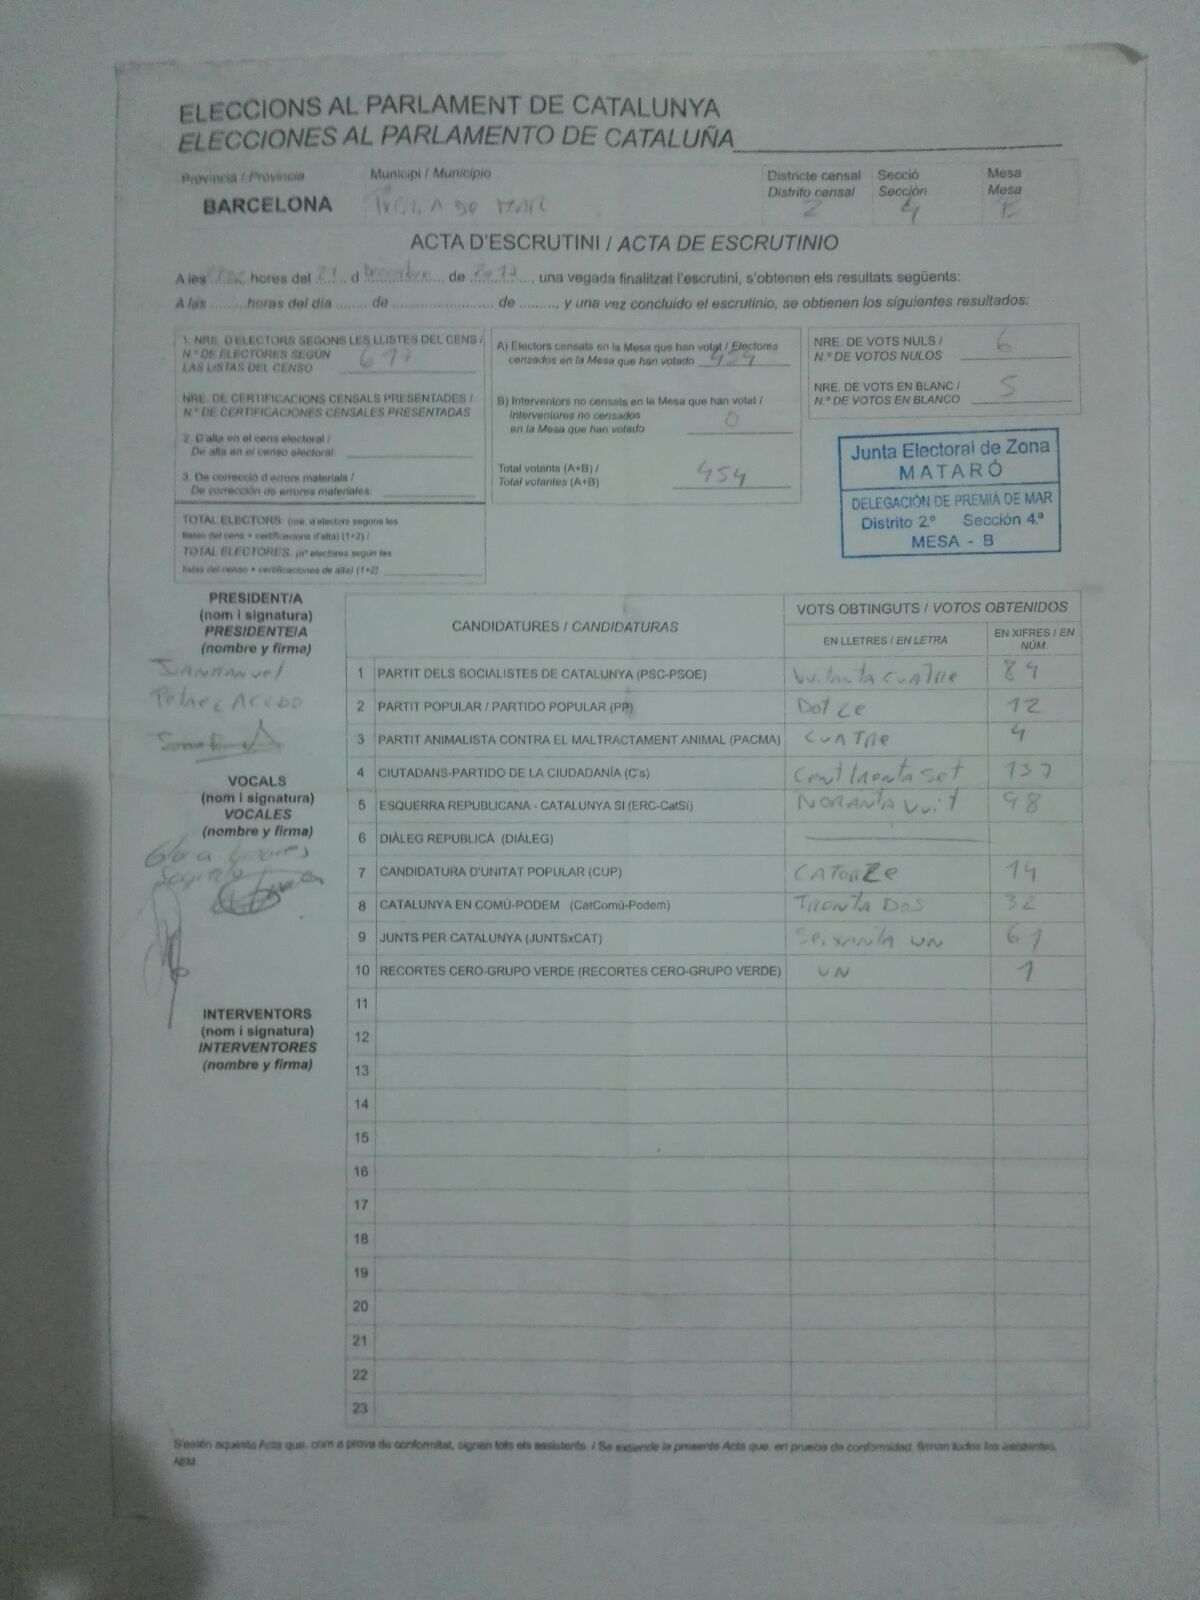 ELECCIONS AL PARLAMENT DE CATALUNYA
ELECCIONES AL PARLAMENTO DE CATALUÑA
Província / Provincia
Municipi / Municipio
Districte censal
Distrito censal
Secció
Sección
Mesa
Mesa
BARCELONA
DE MAR
2
4
B
ACTA D'ESCRUTINI / ACTA DE ESCRUTINIO
A les hores del 21 d de 2017, una vegada finalitzat l'escrutini, s'obtenen els resultats següents:
A las ........horas del día ....... de ...................... de ........., y una vez concluido el escrutinio, se obtienen los siguientes resultados:
1. NRE. D'ELECTORS SEGONS LES LLISTES DEL CENS /
N.º DE ELECTORES SEGÚN
LAS LISTAS DEL CENSO 617
NRE. DE CERTIFICACIONS CENSALS PRESENTADES /
N.º DE CERTIFICACIONES CENSALES PRESENTADAS
2. D'alta en el cens electoral /
De alta en el censo electoral:
3. De correcció d'errors materials /
De corrección de errores materiales:
TOTAL ELECTORS: (nre. d'electors segons les
llistes del cens + certificacions d'alta) (1+2) /
TOTAL ELECTORES: (nº electores según las
listas del censo + certificaciones de alta) (1+2)
A) Electors censats en la Mesa que han votat / Electores
censados en la Mesa que han votado 454
B) Interventors no censats en la Mesa que han votat /
Interventores no censados
en la Mesa que han votado 0
Total votants (A+B) /
Total votantes (A+B) 454
NRE. DE VOTS NULS /
N.º DE VOTOS NULOS 6
NRE. DE VOTS EN BLANC /
N.º DE VOTOS EN BLANCO 5
Junta Electoral de Zona
MATARÓ
DELEGACIÓN DE PREMIÀ DE MAR
Distrito 2.º Sección 4.ª
MESA - B
PRESIDENT/A
(nom i signatura)
PRESIDENTE/A
(nombre y firma)
VOCALS
(nom i signatura)
VOCALES
(nombre y firma)
INTERVENTORS
(nom i signatura)
INTERVENTORES
(nombre y firma)
CANDIDATURES / CANDIDATURAS
VOTS OBTINGUTS / VOTOS OBTENIDOS
EN LLETRES / EN LETRA
EN XIFRES / EN
NÚM.
1 PARTIT DELS SOCIALISTES DE CATALUNYA (PSC-PSOE) VUITANTA CUATRE 84
2 PARTIT POPULAR / PARTIDO POPULAR (PP) DOTZE 12
3 PARTIT ANIMALISTA CONTRA EL MALTRACTAMENT ANIMAL (PACMA) CUATRE 4
4 CIUTADANS-PARTIDO DE LA CIUDADANÍA (C's) CENT TRENTA SET 137
5 ESQUERRA REPUBLICANA - CATALUNYA SI (ERC-CatSí) NORANTA VUIT 98
6 DIÀLEG REPUBLICÀ (DIÀLEG)
7 CANDIDATURA D'UNITAT POPULAR (CUP) CATORZE 14
8 CATALUNYA EN COMÚ-PODEM (CatComú-Podem) TRENTA DOS 32
9 JUNTS PER CATALUNYA (JUNTSxCAT) SEIXANTA UN 61
10 RECORTES CERO-GRUPO VERDE (RECORTES CERO-GRUPO VERDE) UN 1
11
12
13
14
15
16
17
18
19
20
21
22
23
S'estén aquesta Acta que, com a prova de conformitat, signen tots els assistents. / Se extiende la presente Acta que, en prueba de conformidad, firman todos los asistentes.